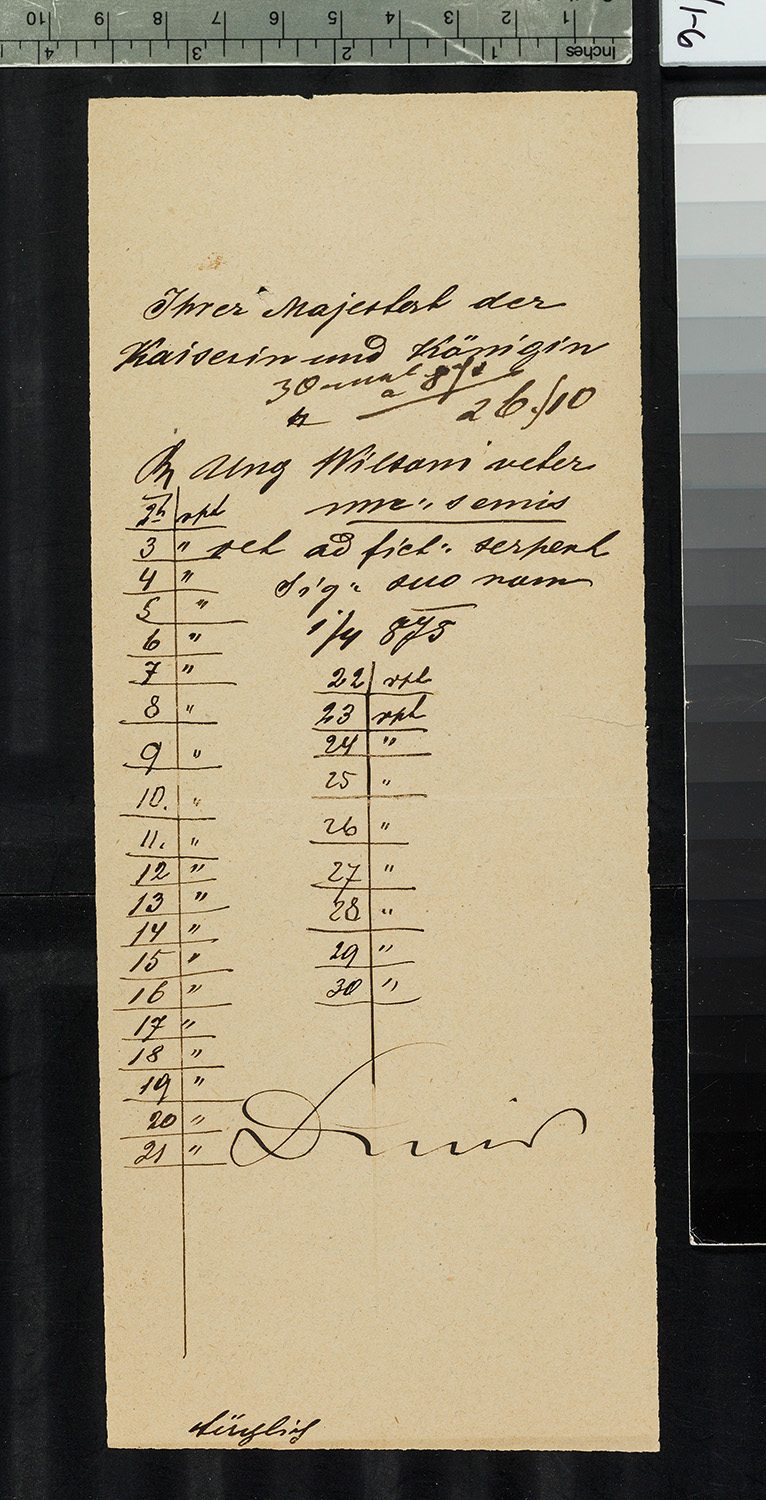 10 9 8 7 6 5 4 3 2 1
4 3 2 1 Inches
/1-6
Ihrer Majestert der
Kaiserin und Königin
30 mal
a
26./10
Ung Wilsoni veter
unc: semis
2t rpt
3 " ad fict: serpent
4 " Sig: suo nom
5 "
1/4 875
6 "
7 "
8 "
9 "
10. "
11. "
12 "
13 "
14 "
15 "
16 "
17 "
18 "
19 "
20 "
21 "
22 rpt
23 rpt
24 "
25 "
26 "
27 "
28 "
29 "
30 "